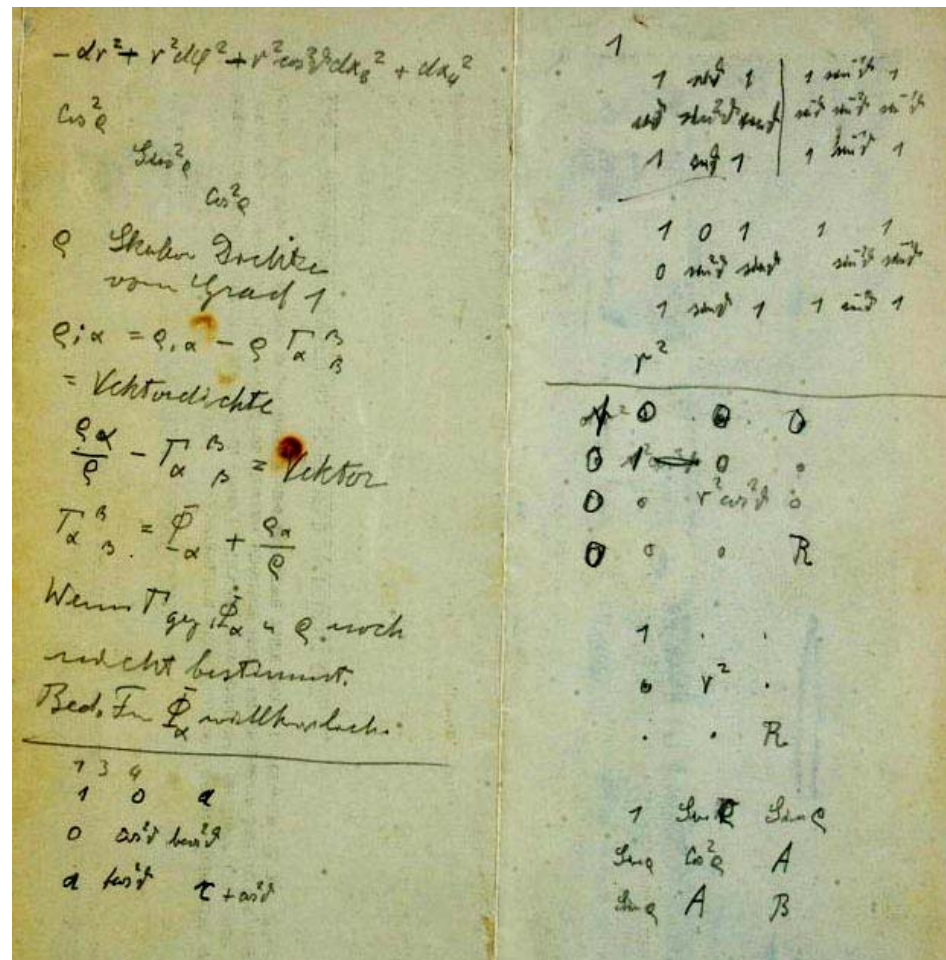 - dr² + r²dφ² + r²cos²ϑdx₃² + dx₄²
Cos²ρ
Sin²ρ
Cos²ρ
ρ Skalar Dichte
vom Grad 1.
ρ;α = ρ,α - ρ Γα β β
= Vektordichte
ρα/ρ - Γα β β = Vektor
Γα β β = Φα + ρα/ρ
Wenn Γ geg. Φα u ρ noch
nicht bestimmt.
Φα willkürlich.
1 3 4
1 0 α
0 cos²ϑ
α τ + cos²ϑ
1
1 sinϑ 1 | 1 sin²ϑ 1
sinϑ sin²ϑ sinϑ | sin²ϑ sin²ϑ sin²ϑ
1 sinϑ 1 | 1 sin²ϑ 1
1 0 1 1 1
0 sin²ϑ sinϑ sin²ϑ sinϑ
1 sinϑ 1 1 sinϑ 1
r²
0 0 0
0 1 0 .
0 0 r²cos²ϑ 0
0 0 . R
1 . .
0 r² .
. . R
1 Sinρ Sinρ
Sinρ Cos²ρ A
Sinρ A B